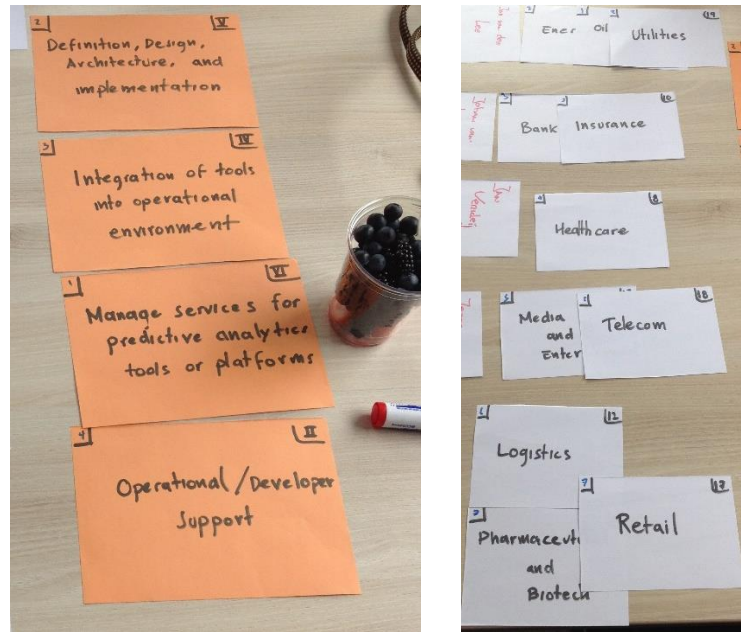 2 V
Definition, Design,
Architecture, and
implementation
3 IV
Integration of tools
into operational
environment
1 VI
Manage services for
predictive analytics
tools or platforms
4 II
Operational/Developer
Support
Ener
Oil
Utilities
19
Bank
Insurance
10
Healthcare
8
Media
and
Enter
Telecom
18
Logistics
12
Pharmaceuti
and
Biotech
7 17
Retail